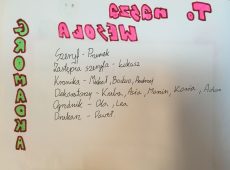 nasza
WESOŁA
GROMADKA
Szeryf -
Zastępca szeryfa - Łukasz
Kronika - Michał, Andrzej
Dekoratorzy - Kuba, Asia, Marcin, Kasia, Adam
Ogrodnik - Ola, Lea
Drukarz - Paweł